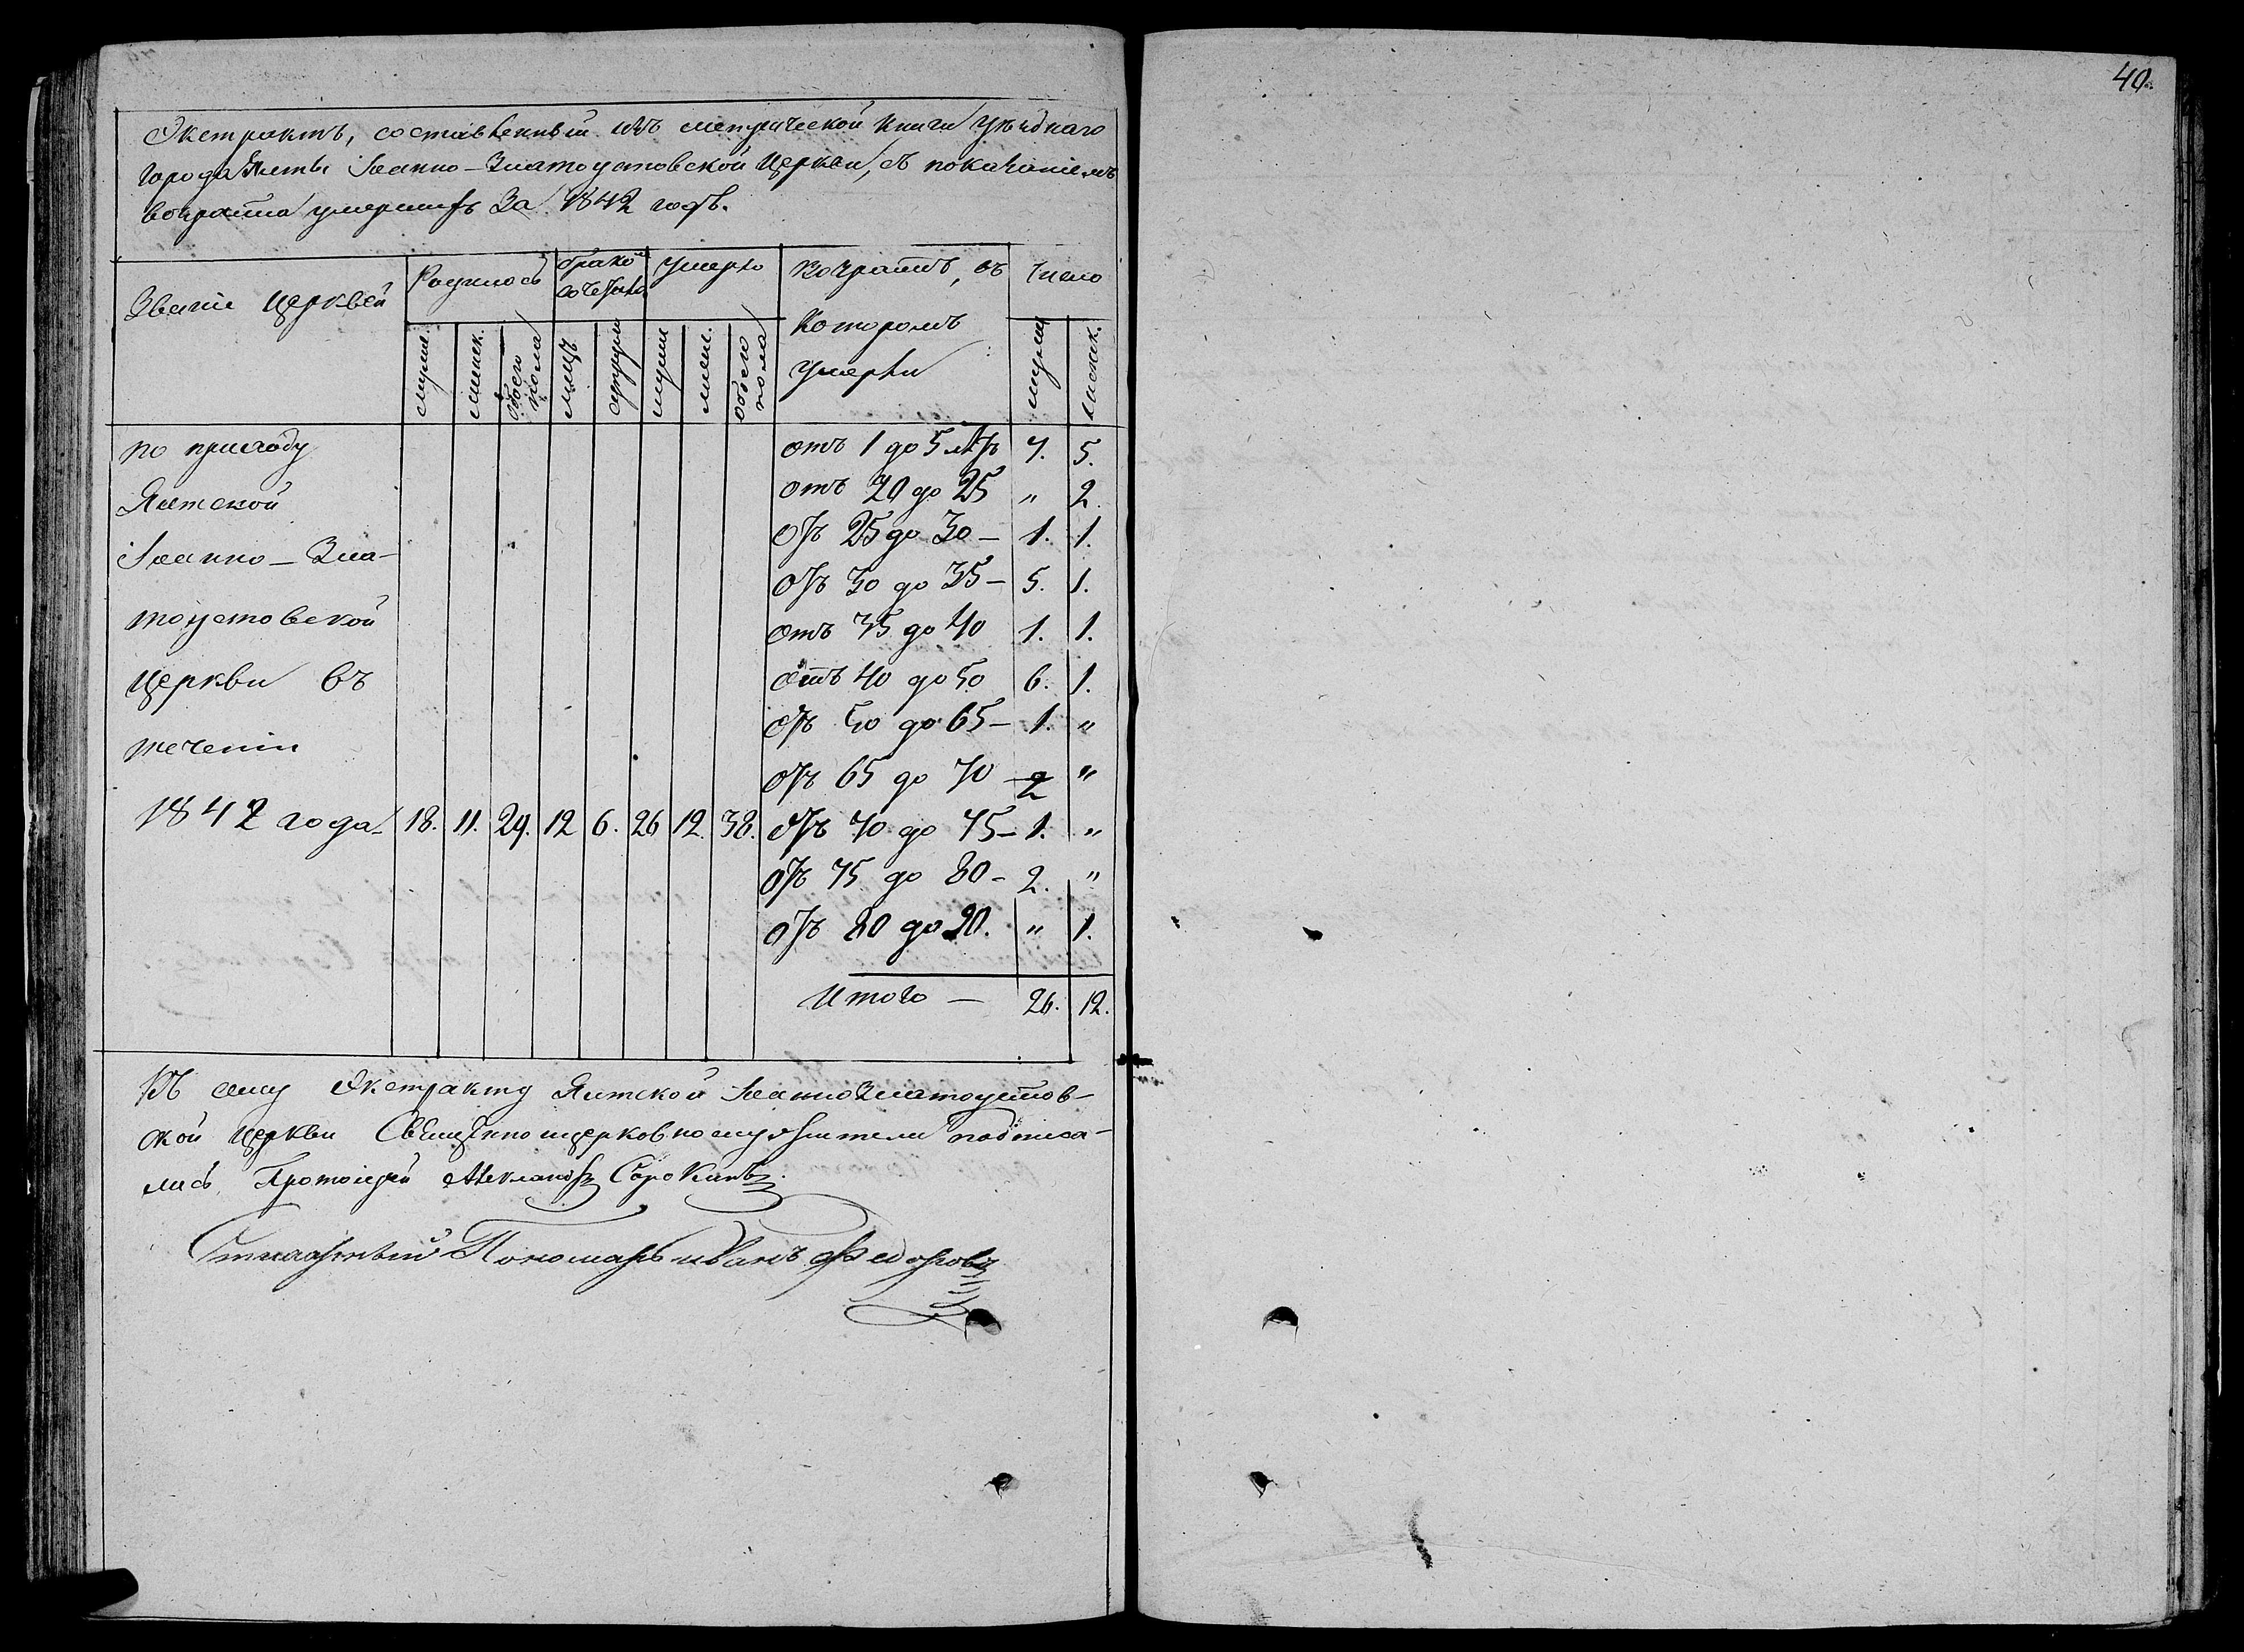 40.
Экстрактъ, составленный изъ метрической книги уѣзднаго
города Ялты Іоанно-Златоустовской Церкви, съ показаніемъ
возраста умершихъ За 1842 годъ.
Званіе Церквей
Родилось
брако-
сочетано
Умерло
Возрастъ, въ
Которомъ
Умерли
Число
мужеск.
женск.
обоего пола
лицъ
супруж.
мужеск.
женск.
обоего пола
мужеск.
женск.
отъ 1 до 5 лѣтъ 7. 5.
отъ 20 до 25 " 2.
отъ 25 до 30 — 1. 1.
отъ 30 до 35 — 5. 1.
отъ 35 до 40 1. 1.
отъ 40 до 50 6. 1.
отъ 50 до 65 — 1. "
отъ 65 до 70 — 2 "
отъ 70 до 75 — 1. "
отъ 75 до 80 - 2. "
отъ 80 до 90. " 1.
Итого — 26. 12.
по приходу
Ялтской
Іоанно-Зла-
тоустовской
Церкви въ
теченіи
1842 года 18. 11. 29. 12 6. 26 12. 38.
Къ сему Экстракту Ялтской ІоанноЗлатоустов-
ской Церкви Священноцерковнослужители подписа-
лись Протоіерей Александръ Сорокинъ.
Пономарь Иванъ Федоровъ